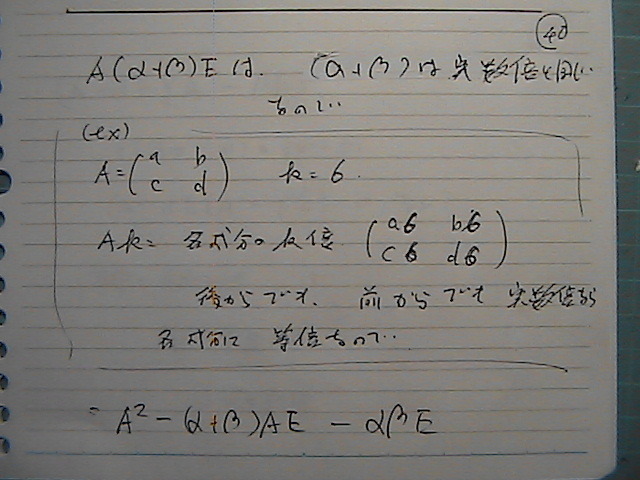 40
A(α+β)Eは、(α+β)は実数倍と同じ
なので
(ex)
A=(a b
c d) k=6.
Ak= 各成分のk倍 (a6 b6
c6 d6)
後からでも、前からでも 実数倍なら
各成分に 等倍なので
= A² - (α+β)AE - αβE